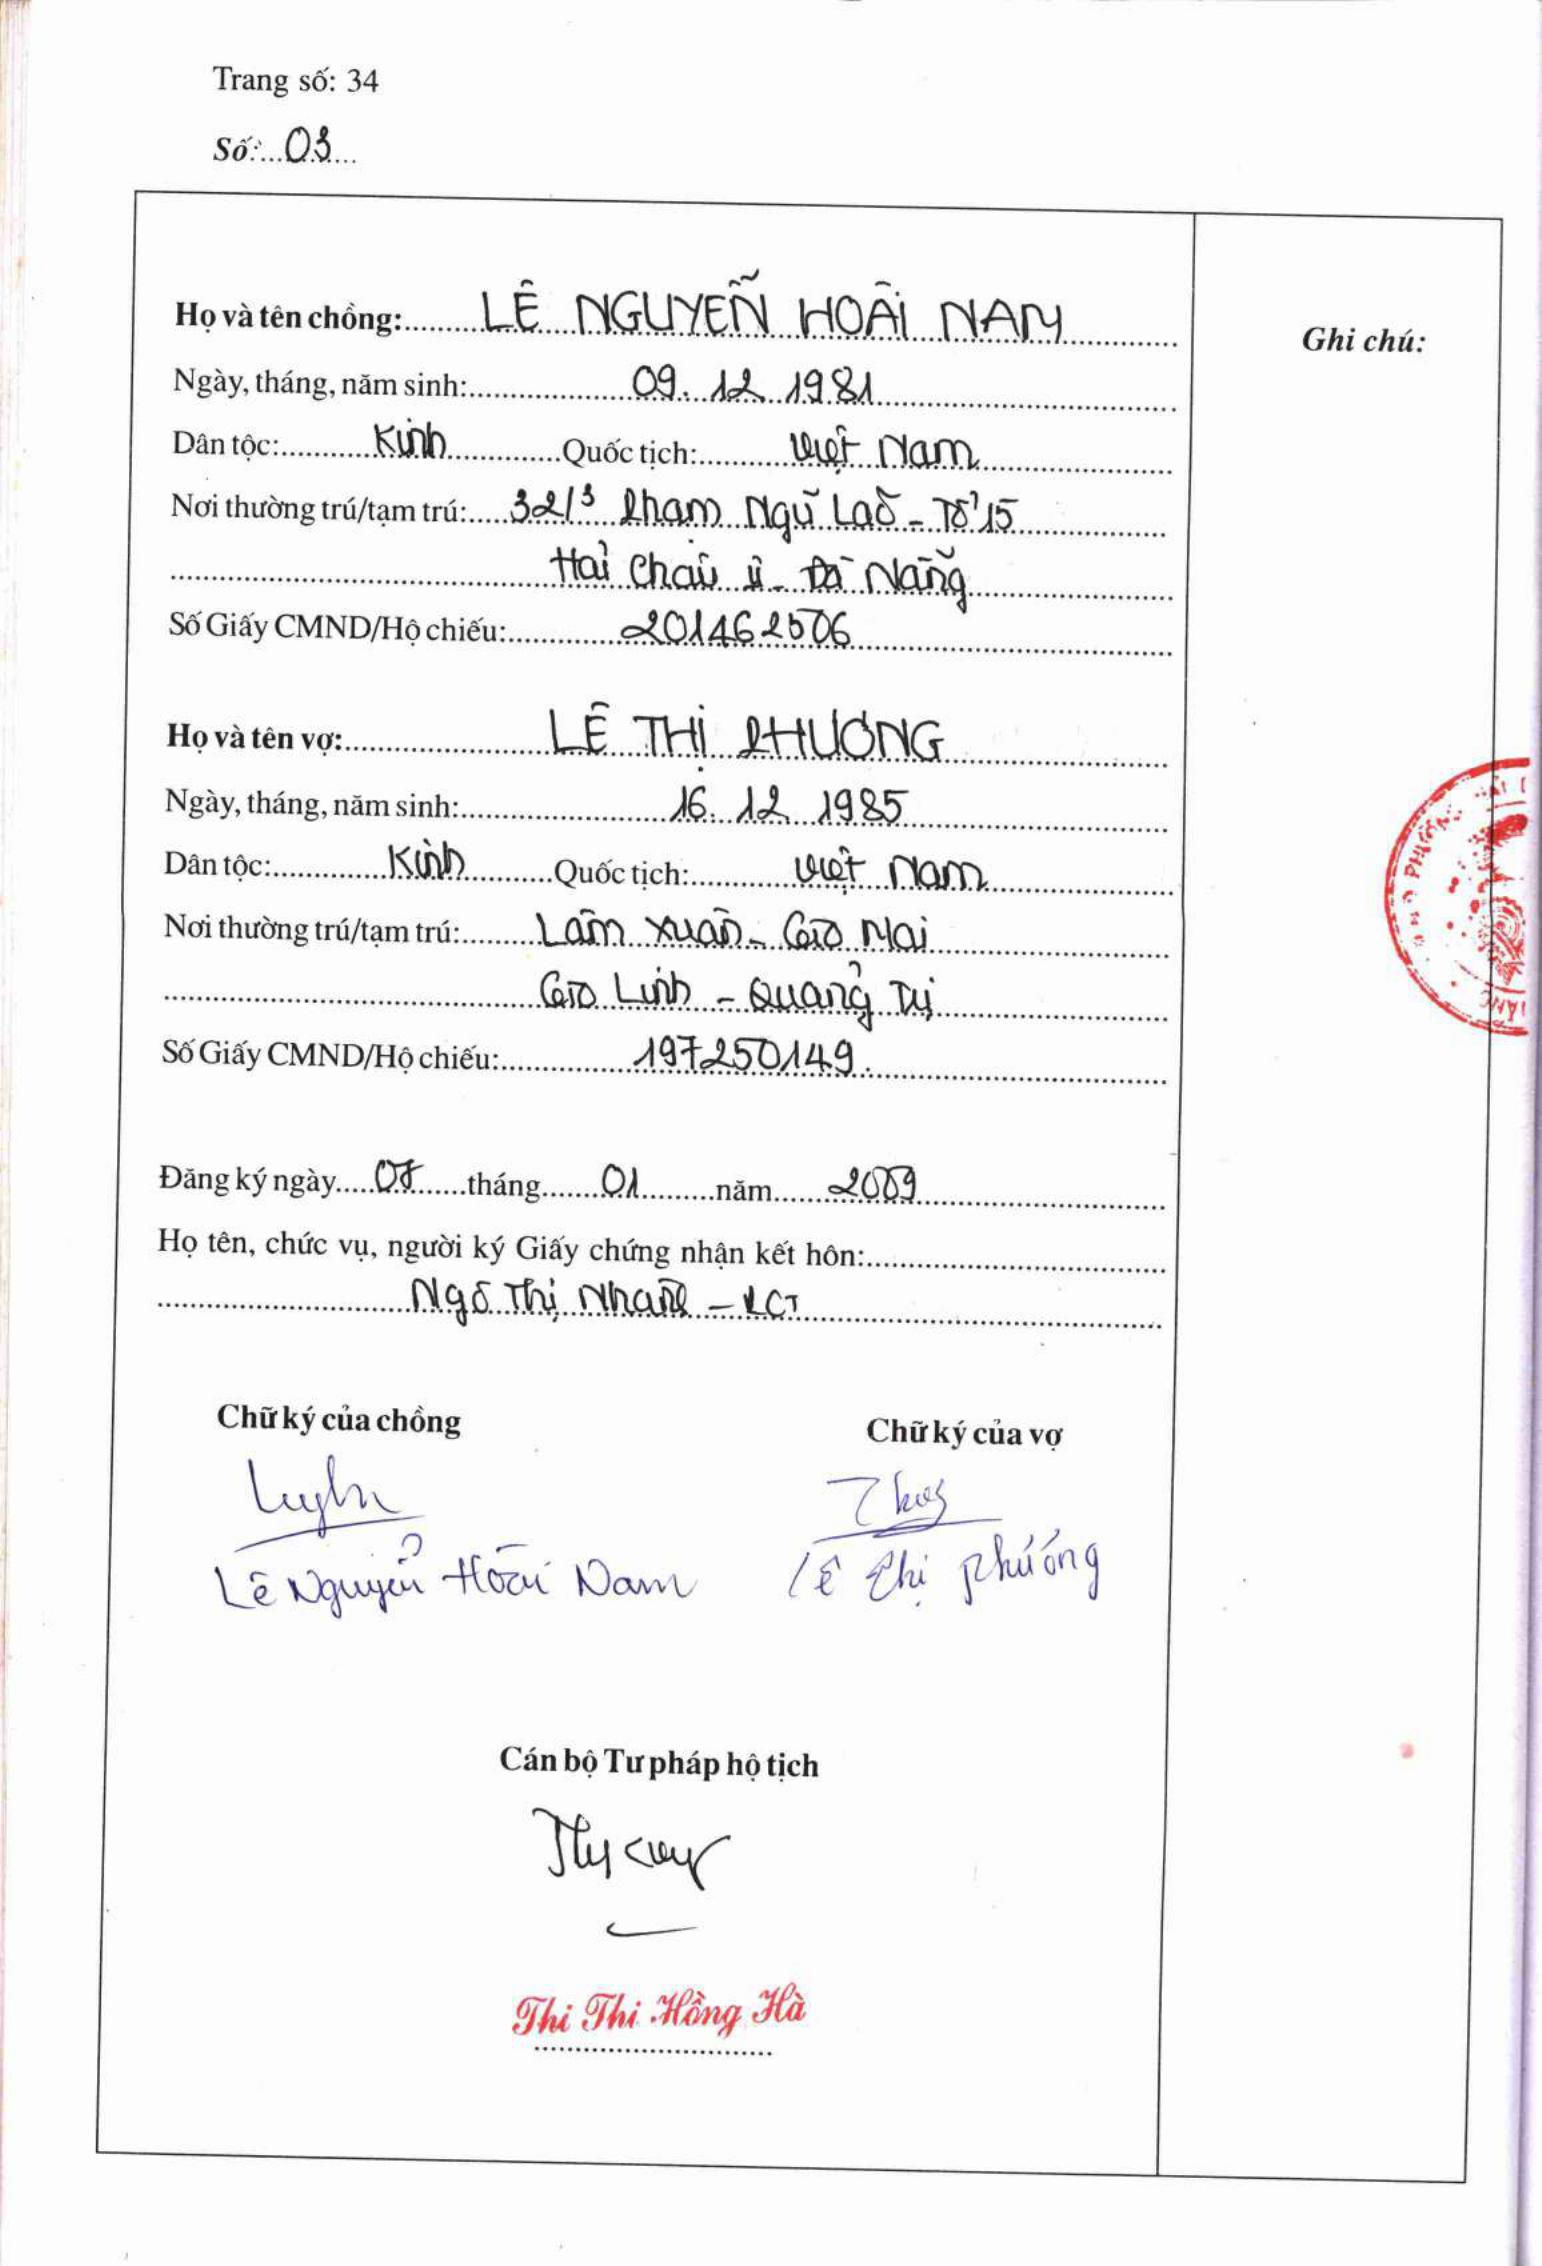 Trang số: 34
Số: 03
Ghi chú:
Họ và tên chồng: LÊ NGUYỄN HOÀI NAM
Ngày, tháng, năm sinh: 09. 12. 1981
Dân tộc: Kinh Quốc tịch: Việt Nam
Nơi thường trú/tạm trú: 32/3 Phạm Ngũ Lão - Tổ 15
Hải Châu II - Đà Nẵng
Số Giấy CMND/Hộ chiếu: 201462506
Họ và tên vợ: LÊ THỊ PHƯƠNG
Ngày, tháng, năm sinh: 16. 12. 1985
Dân tộc: Kinh Quốc tịch: Việt Nam
Nơi thường trú/tạm trú: Lâm Xuân - Gio Mai
Gio Linh - Quảng Trị
Số Giấy CMND/Hộ chiếu: 197250149.
Đăng ký ngày tháng 01 năm 2009
Họ tên, chức vụ, người ký Giấy chứng nhận kết hôn:
Ngô Thị - PCT
Chữ ký của chồng Chữ ký của vợ
Lê Nguyễn Hoài Nam Lê Thị Phương
Cán bộ Tư pháp hộ tịch
Thi Thi Hồng Hà